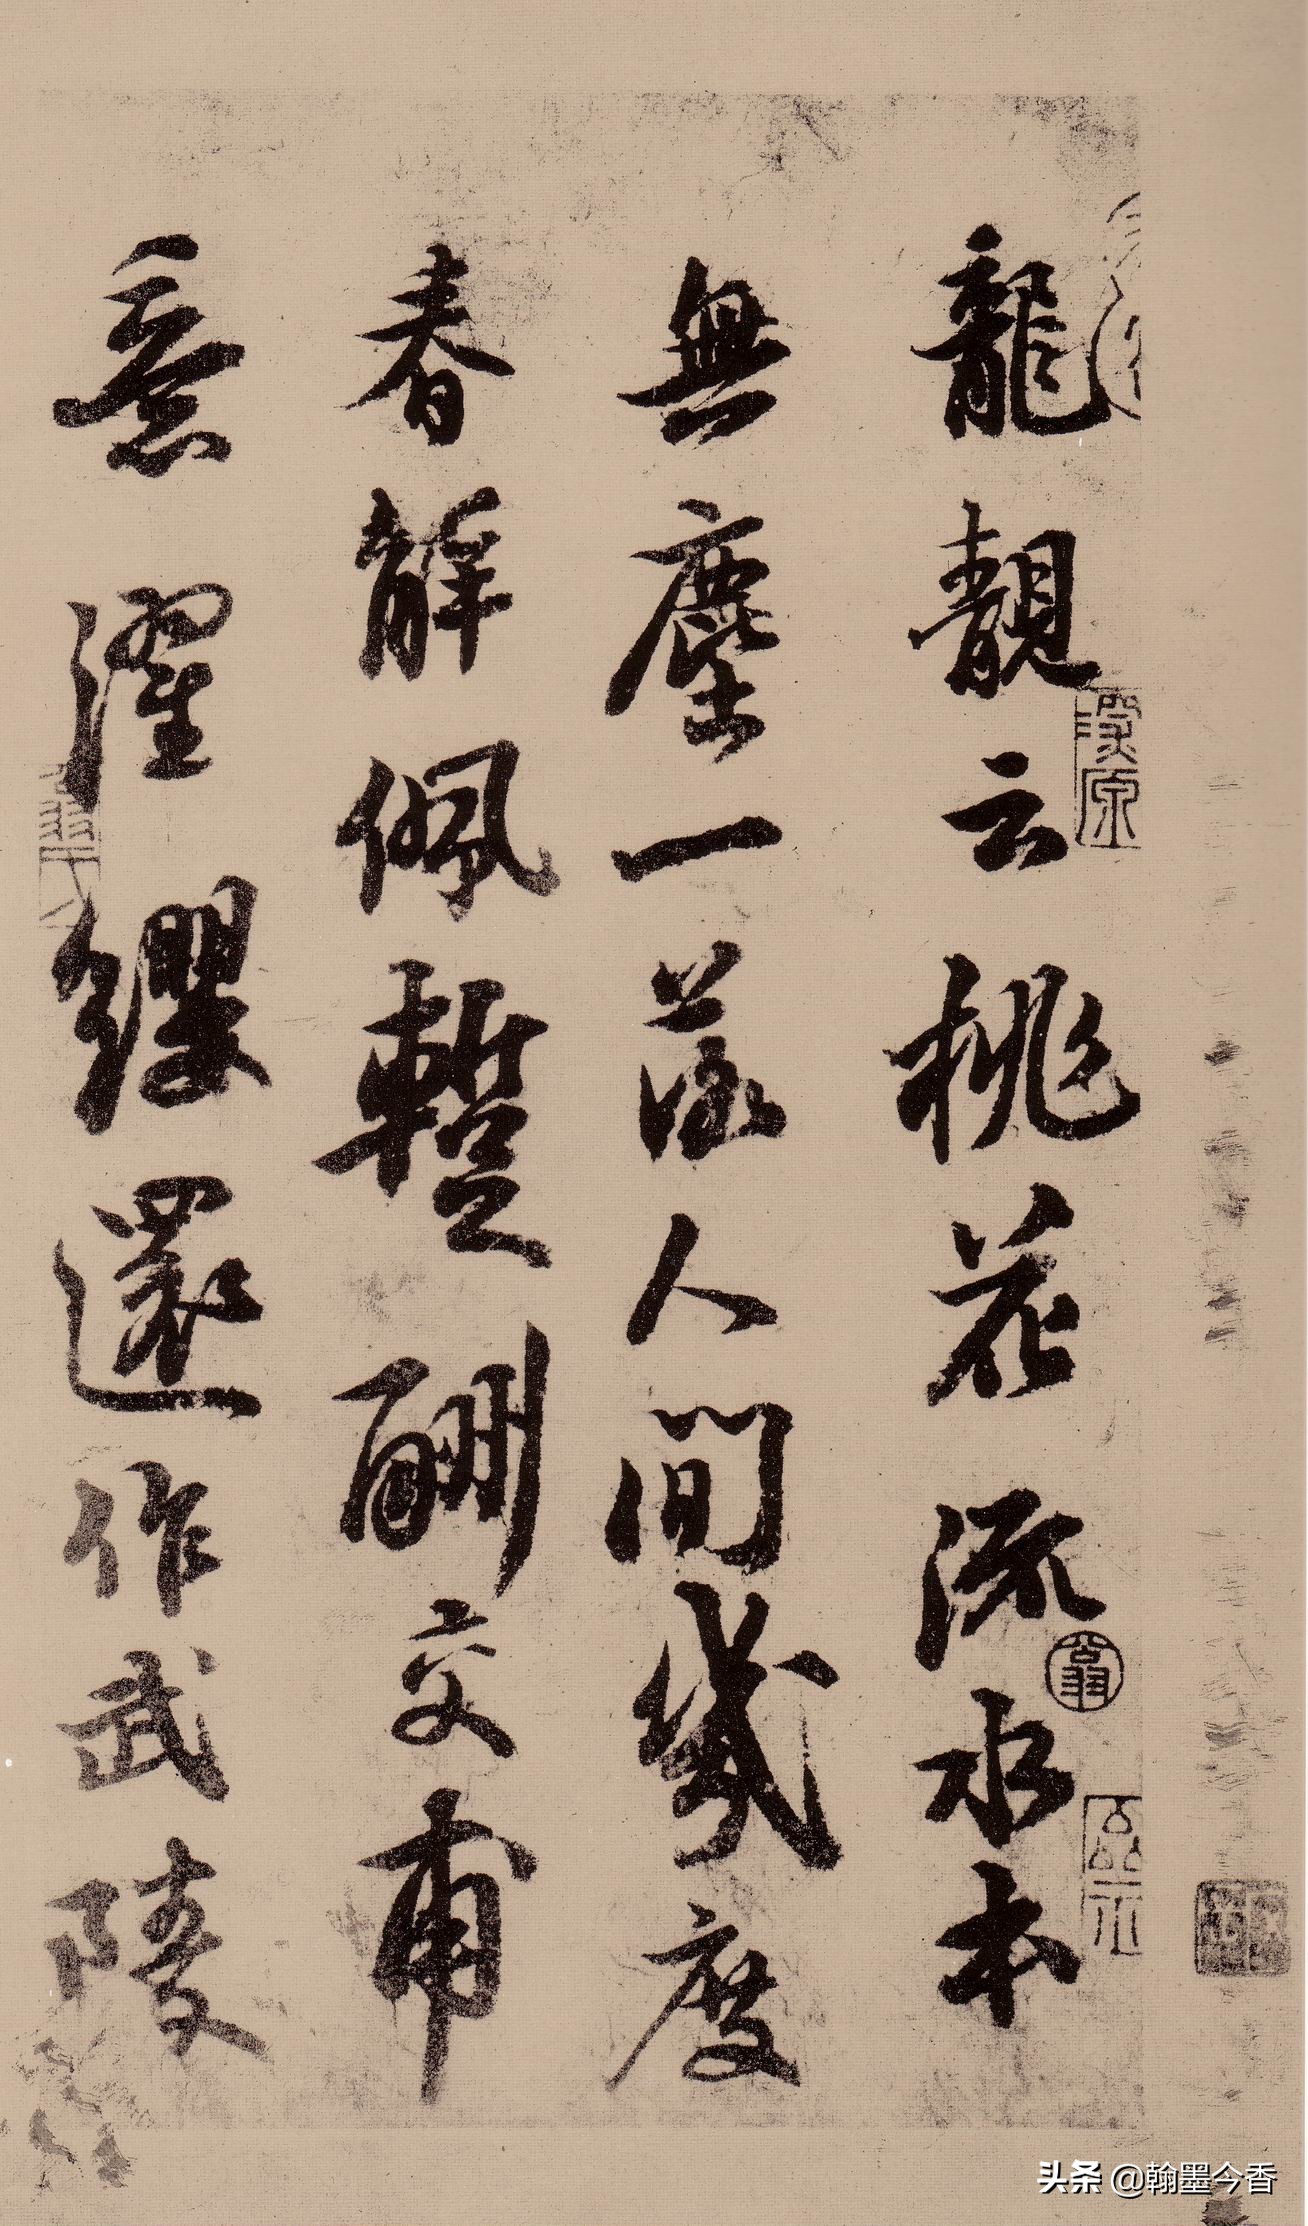 龍靚云桃花流水本
無塵一落人間幾度
春解佩蹔酬交甫
意濯纓還作武陵
頭条 @翰墨今香